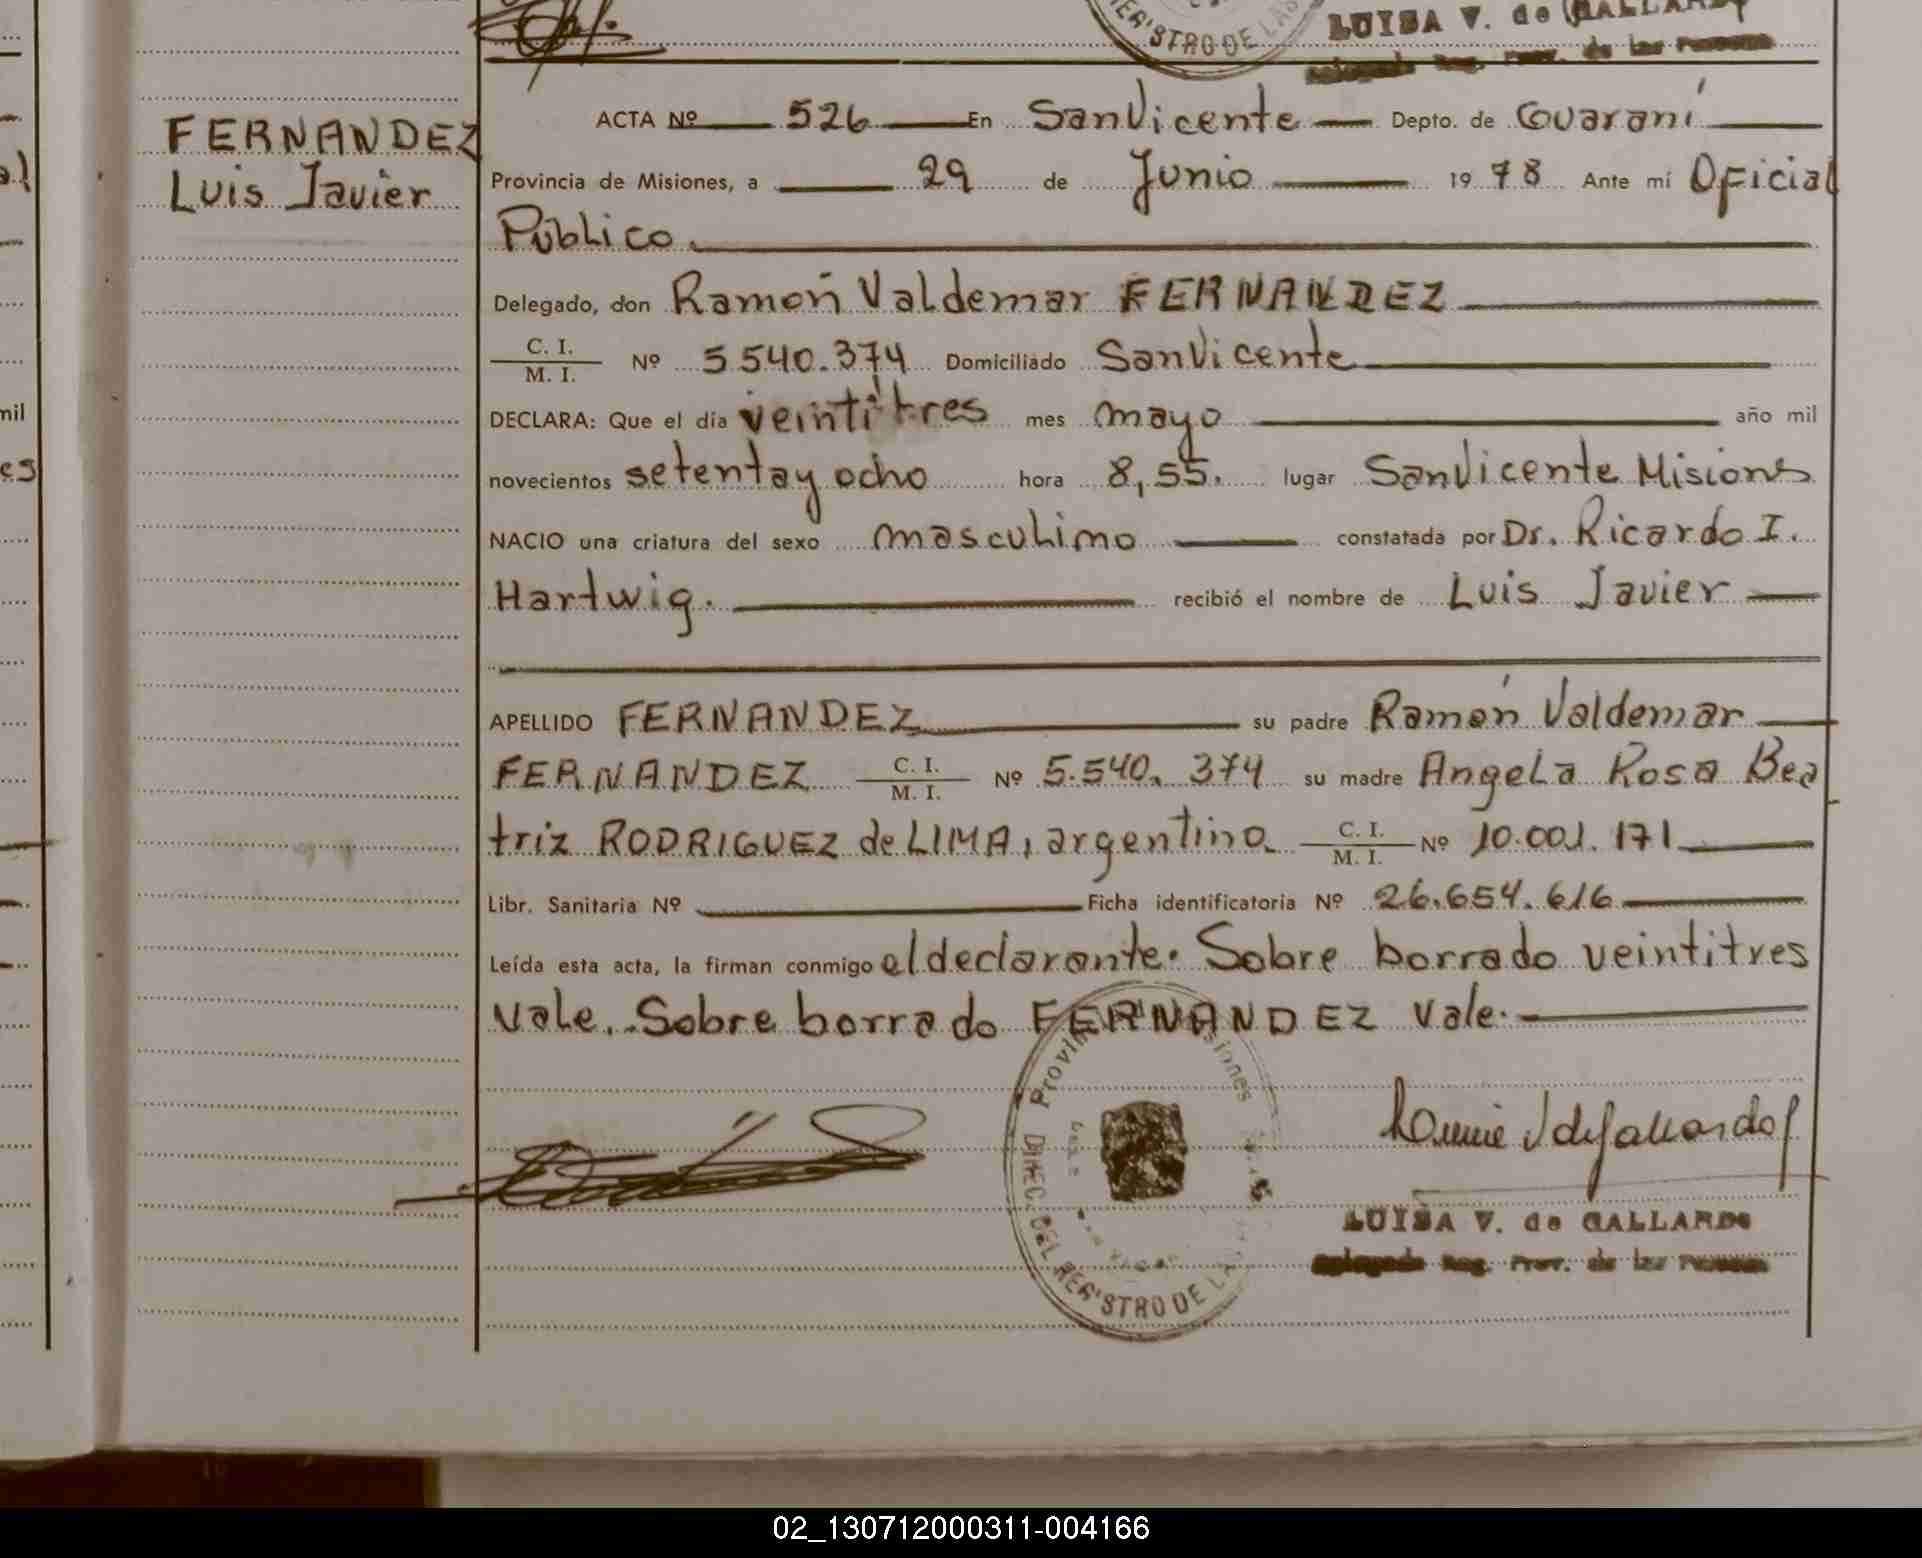 LUISA V. de GALLARDO
Delegada Reg. Prov. de las Personas
FERNANDEZ
Luis Javier
ACTA Nº 526 En San Vicente Depto. de Guaraní
Provincia de Misiones, a 29 de Junio 1978 Ante mí Oficial
Público.
Delegado, don Ramón Valdemar FERNANDEZ
C. I. / M. I. Nº 5.540.374 Domiciliado San Vicente
DECLARA: Que el día veintitres mes mayo año mil
novecientos setenta y ocho hora 8,55. lugar San Vicente Misiones
NACIO una criatura del sexo masculino constatada por Dr. Ricardo I.
Hartwig. recibió el nombre de Luis Javier
APELLIDO FERNANDEZ su padre Ramón Valdemar
FERNANDEZ C. I. / M. I. Nº 5.540.374 su madre Angela Rosa Bea
triz RODRIGUEZ de LIMA, argentina C. I. / M. I. Nº 10.001.171
Libr. Sanitaria Nº Ficha identificatoria Nº 26.654.616
Leída esta acta, la firman conmigo el declarante. Sobre borrado veintitres
vale. Sobre borrado FERNANDEZ vale.
LUISA V. de GALLARDO
Delegada Reg. Prov. de las Personas
02_130712000311-004166